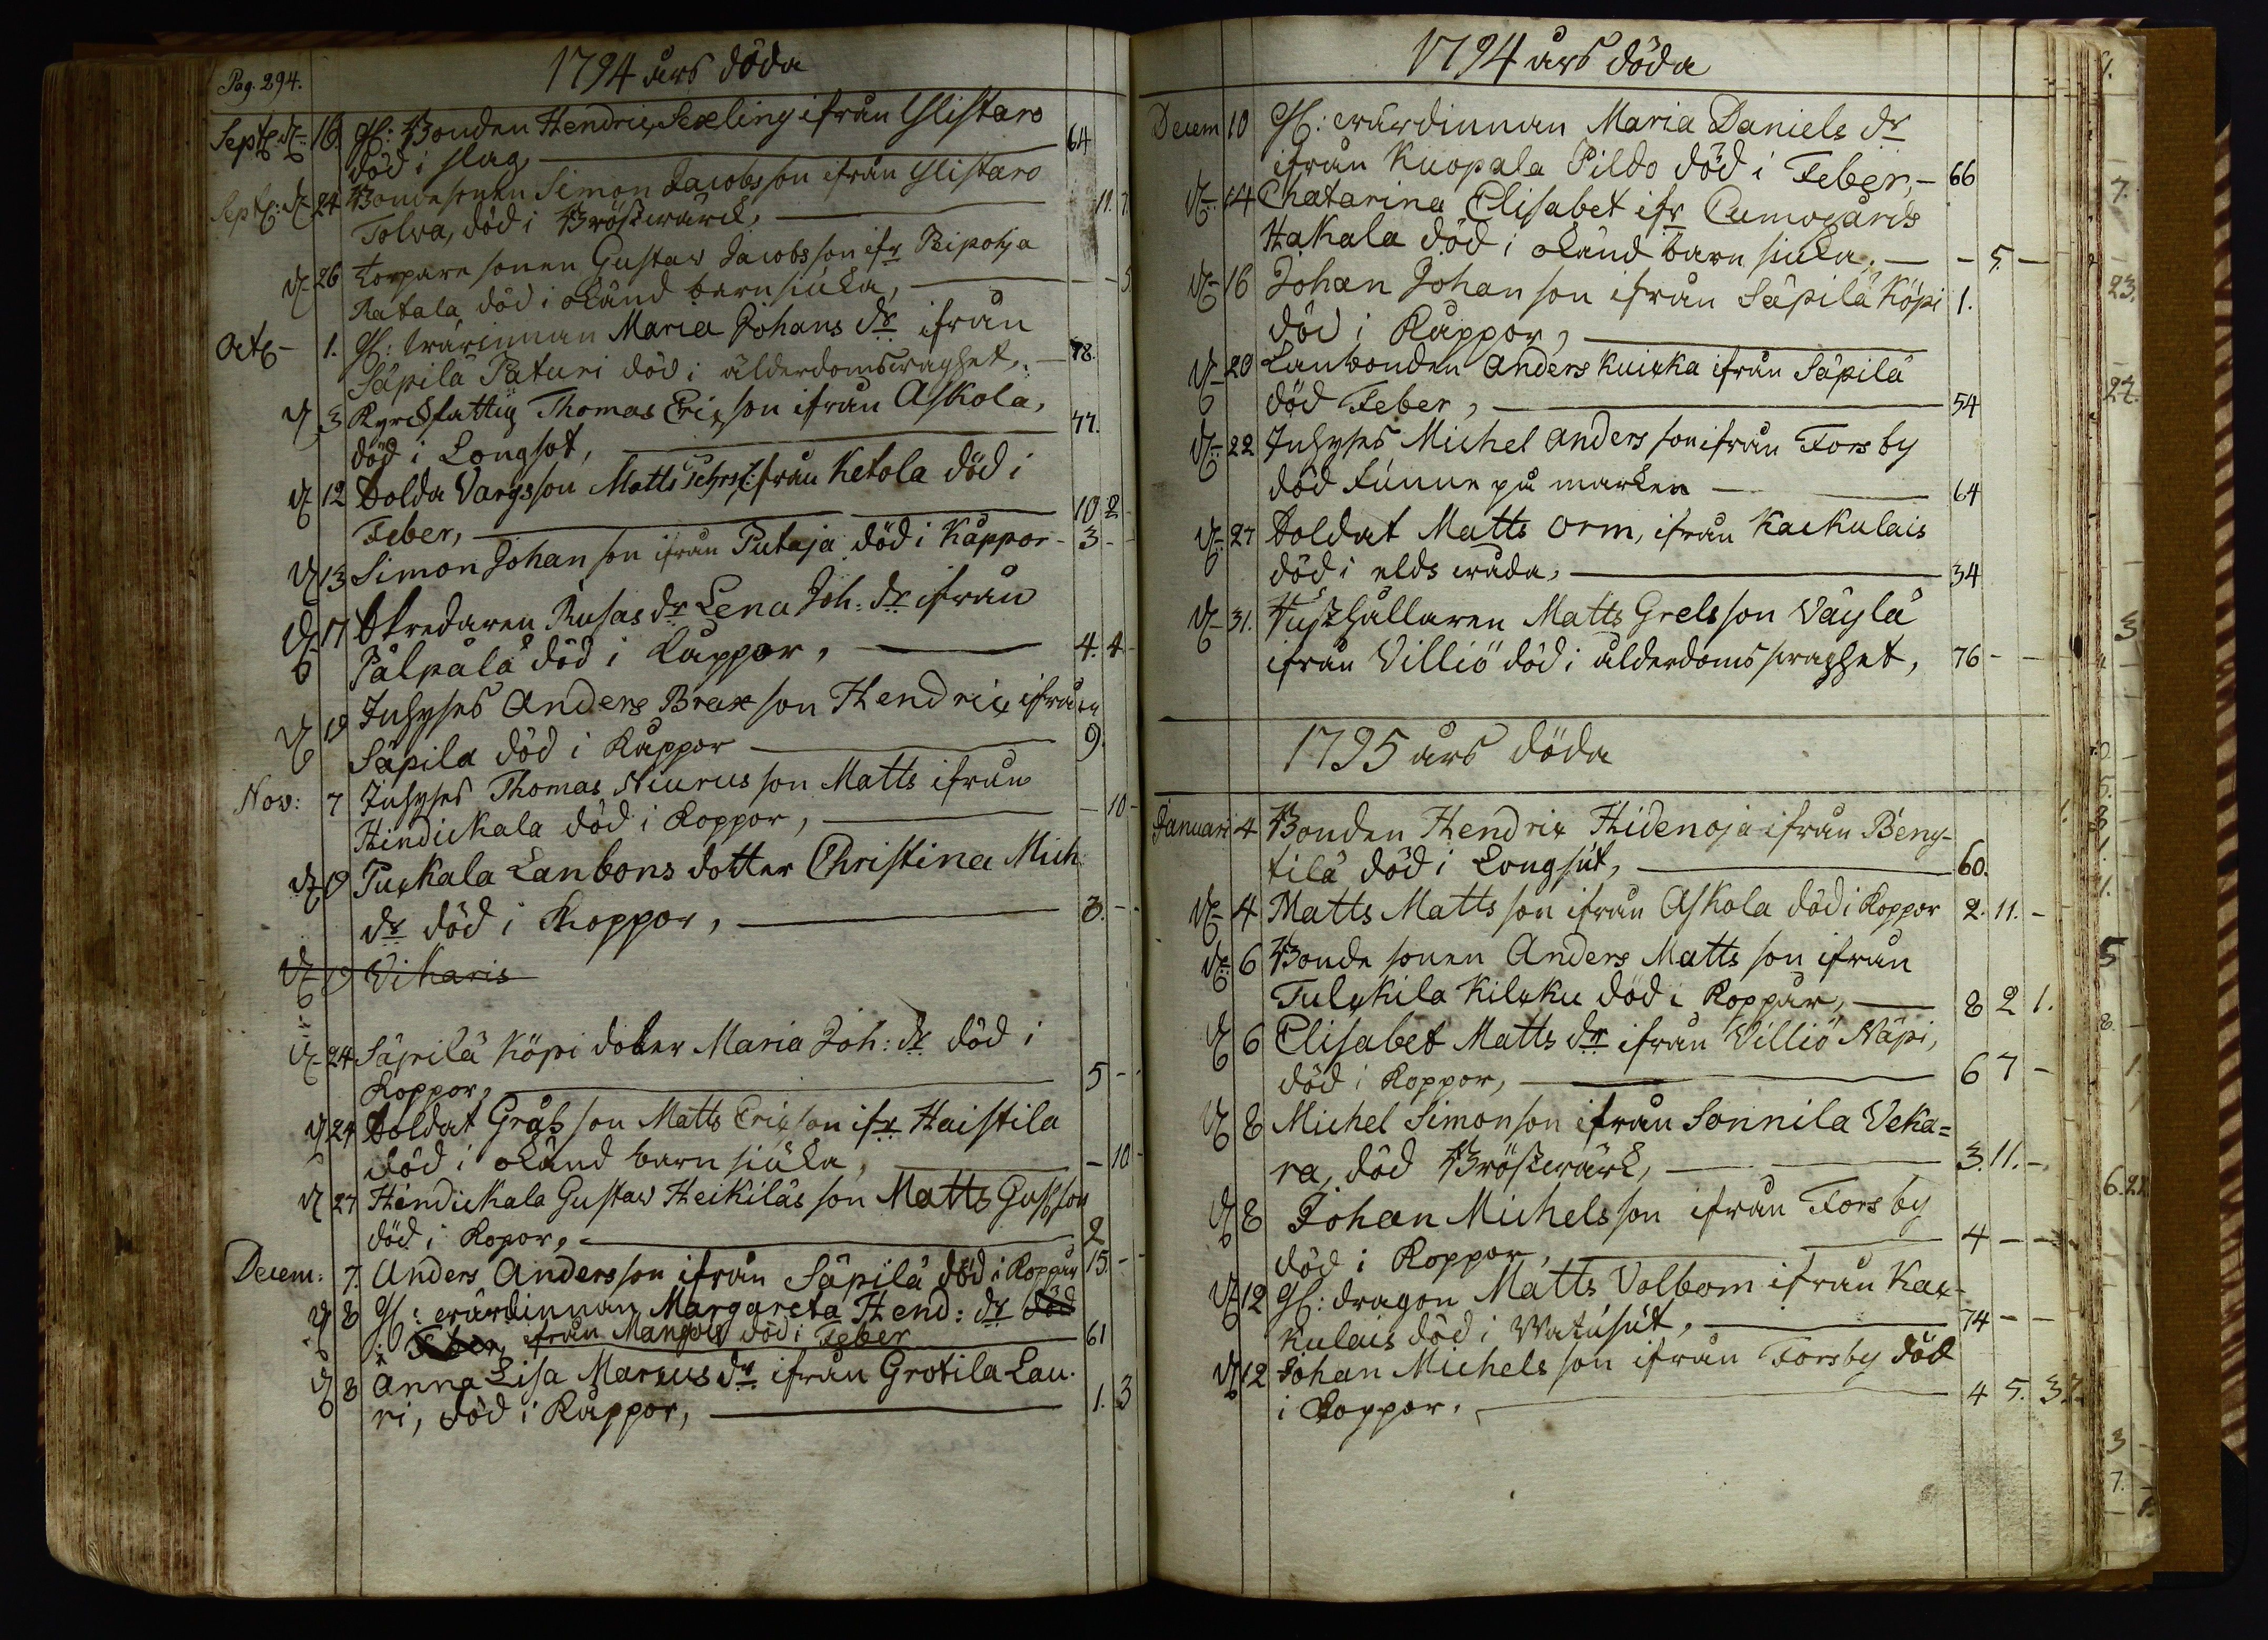 Pag. 294.
1794 års döda
Sept: d: 16. Gl: Bonden Hendric Sexling ifrån Ylistaro
död i slag, 64
Sept: d: 24 Bondesonen Simon Jacobsson ifrån Ylistaro
Tolva, död i Bröstwärck, 11. 7.
d 26 Torpare sonen Gustaw Jacobsson ifr Pipohja
Ratala död i okänd barnsiuka, - - 5
Oct: 1. Gl: wärinnan Maria Johans dr ifrån
Säpilä Paturi död i ålderdomswaghet. 78.
d 3 Kyrckfattig Thomas Ericson ifrån Askola,
död i Longsot, 77.
d 12 Solda Vargsson Matts ifrån Ketola död i
Feber, 10 2
d 13 Simon Johanson ifrån Putaja död i Kåppor - 3 -
d 17 Skredaren Rusas dr Lena Joh: dr ifrån
Pälpälä död i Kåppor, 4. 4
d 19 Inhyses Anders Brax son Hendric ifrån
Säpila död i Kåppor 9.
Nov: 7 Inhyses Thomas Niurus son Matts ifrån
Hindickala död i Koppor, - 10 -
d 19 Puckala Lanbons dotter Christina Mich:
dr död i Koppor, 3. -
d 19 Vikaris
d 24 Säpilä Köpi doter Maria Joh: dr död i
Koppor, 5 -
d 24 Soldat Grås son Matts Ericson ifr Haistila
död i okänd barn siuka, - 10 -
d 27 Hindickala Gustaw Heikiläs son Matts Gustson
död i Kopor, 2
Decem: 7. Anders Andersson ifrån Säpilä död i Koppår 15. -
d 8 Gl: wärdinnan Margareta Hend: dr död
Feber, ifrån Mangois död i Feber 61
d 8 Anna Lisa Marcus dr ifrån Grotila Lau-
ri, död i Kåppor, 1. 3
1794 års döda
Decem 10 Gl: wärdinnan Maria Daniels dr
ifrån Kuopala Pildo död i Feber, - 66
d 14 Chatarina Elisabet ifr Cumogårds
Hakala död i okänd barn siuka. - 5. -
d 16 Johan Johanson ifrån Säpilä Köpi 1.
död i Kåppor,
d 20 Lanbonden Anders Kuicka ifrån Säpilä
död Feber, 54
d 22 Inhyses Michel Andersson ifrån Forsby
död funnen på marken 64
d 27 Soldat Matts Orm, ifrån Kackulais
död i elds wåda, 34
d 31. Hushållaren Matts Grelsson Wäylä
ifrån Villiö död i ålderdoms swaghet, 76 -
1795 års döda
Januari 4 Bonden Hendric Hidenoja ifrån Beng-
tilä död i Longsút, 60.
d 4 Matts Mattsson ifrån Askola död i Koppor 2. 11. -
d 6 Bonde sonen Anders Mattsson ifrån
Tulckila Kilcku död i Koppår, 8 2 1.
d 6 Elisabet Matts dr ifrån Villiö Näpi,
död i Koppor, 6 7 -
d 8 Michel Simonson ifrån Sonnila Veka=
ra, död Bröstwärck, 3. 11. -
d 8 Johan Michelsson ifrån Forsby
död i Koppor, 4 - -
d 12 Gl: dragon Matts Volbom ifrån Kac-
kulais död i Watúsút, 74 - -
d 12 Johan Michelsson ifrån Forsby död
i Koppor. 4 5. 3.